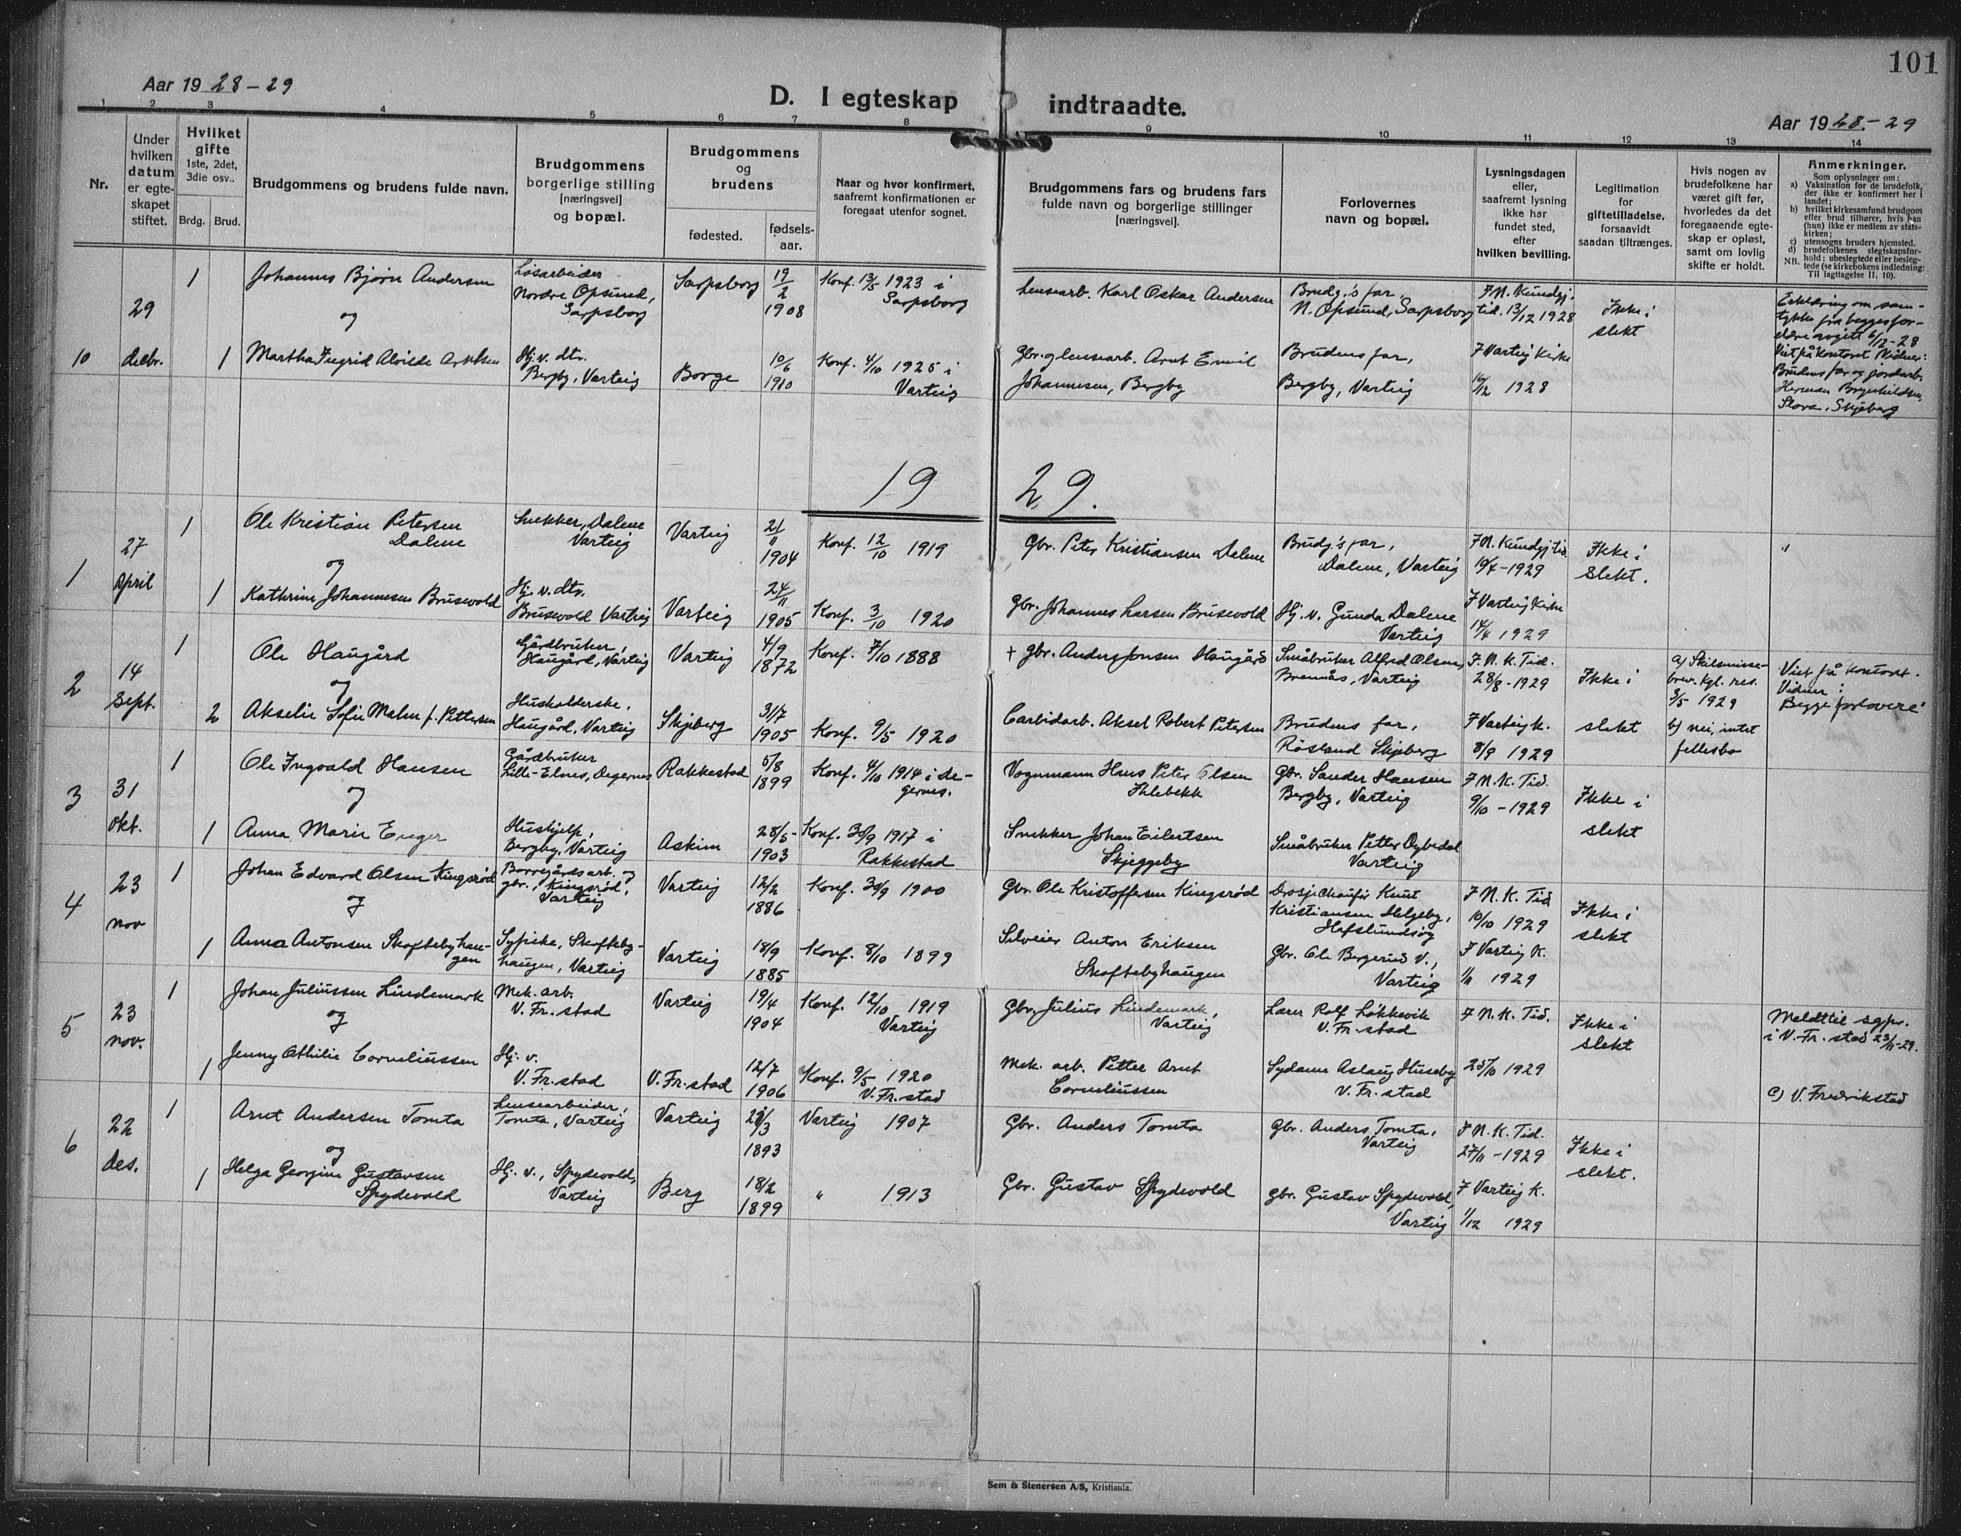 101
Aar 1928-29
D. I egteskap indtraadte.
Aar 1928.-29
1 2 3 4 5 6 7 8 9 10 11 12 13 14
Nr.
Under
hvilken
datum
er egte-
skapet
stiftet.
Hvilket
gifte
1ste, 2det,
3die osv..
Brdg. Brud.
Brudgommens og brudens fulde navn.
Brudgommens
borgerlige stilling
[næringsvei]
og bopæl.
Brudgommens
og
brudens
fødested.
fødsels-
aar.
Naar og hvor konfirmert,
saafremt konfirmationen er
foregaat utenfor sognet.
Brudgommens fars og brudens fars
fulde navn og borgerlige stillinger
[næringsvei].
Forlovernes
navn og bopæl.
Lysningsdagen
eller,
saafremt lysning
ikke har
fundet sted,
efter
hvilken bevilling.
Legitimation
for
giftetilladelse,
forsaavidt
saadan tiltrænges.
Hvis nogen av
brudefolkene har
været gift før,
hvorledes da det
foregaaende egte-
skap er opløst,
samt om lovlig
skifte er holdt.
Anmerkninger.
Som oplysninger om:
a) Vaksination for de brudefolk,
der ikke er konfirmert her i
landet;
b) hvilket kirkesamfund brudgom
eller brud tilhører, hvis han
(hun) ikke er medlem av stats-
kirken;
c) utensogns bruders hjemsted.
d) brudefolkenes slegtskapsfor-
hold: ubeslegtede eller besleg-
NB. tede (se kirkebokens indledning:
Til iagttagelse II, 10).
10
29
debr.
1
Johannes Bjørn Andersen
og
1
Martha Ingrid Alvilde Arntsen
Løsarbeider
Nordre Opsund,
Sarpsborg
Hj. v. dtr.
Bergby, Varteig
Sarpsborg
19/2
1908
Borge
10/6
1910
Konf. 13/5 1923 i
Sarpsborg
Konf. 4/10 1925 i
Varteig
Lensearb. Karl Oskar Andersen
Gbr. og lensearb. Arnt Emil
Johannesen, Bergby
Brudg.'s far,
N. Opsund, Sarpsborg
Brudens far,
Bergby, Varteig
F. N. Kundgj.
tid. 13/12 1928
F Varteig Kirke
16/12 1928
Ikke i
slekt
Erklæring om sam-
tykke fra begges for-
eldre avgitt 6/12-28
Vist på kontoret. Vidner:
Brudens far og jordarb.
Herman Borgenhildsen,
Skjeberg
1929.
1
27
april
1
Ole Kristian Petersen
Dalene
og
1
Kathrine Johannesen Brusevold
Snekker, Dalene
Varteig
Hj. v. dtr.
Brusevold Varteig
Varteig
21/11
1904
Varteig
24/11
1905
Konf. 12/10 1919
Konf. 3/10 1920
Gbr. Peter Kristiansen Dalene
Gbr. Johannes Larsen Brusevold
Brudg.'s far,
Dalene, Varteig
Hj. v. Gunda Dalene
Varteig
F. N. Kundgj. tid.
19/4-1929
F Varteig Kirke
14/4 1929
Ikke i
slekt.
"
2
14
sept.
1
Ole Haugård
og
2
Akselie Sofie Malm f. Pettersen
Gårdbruker,
Haugård, Varteig
Husholderske,
Haugård, Varteig
Varteig
4/9
1872
Skjeberg
31/7
1905
Konf. 7/10 1888
Konf. 9/5 1920
+ gbr. Anders Jonsen Haugård
Carbidarb. Aksel Robert Petersen
Småbruker Alfred Olsen,
Brennås, Varteig
Brudens far,
Røsland Skjeberg
F. N. K. Tid.
28/8-1929
F Varteig K.
8/9 1929
Ikke i
slekt
a) Skilsmisse-
brev. Kgl. res.
3/5 1929
b) nei, intet
fellesbo
Vist på kontoret.
Vidner:
Begge forlovere
3
31
okt.
1
Ole Ingvald Hansen
og
1
Anna Marie Enger
Gårdbruker
Lille-Elnes, Degernes
Hushjelp,
Bergby, Varteig
Rakkestad
5/8
1899
Askim
28/5-
1903
Konf. 4/10 1914 i De-
gernes.
Konf. 30/9 1917 i
Rakkestad
Vognmann Hans Peter Olsen
Snekker Johan Eilertsen
Skjeggeby
Gbr. Sander Hansen
Bergby, Varteig
Småbruker Petter Dybedal
Varteig
F. N. K. Tid.
9/10-1929
Ikke i
slekt
4
23
nov
1
Johan Edvard Olsen Kingsrød
og
1
Anna Antonsen Skoftebyhau-
gen
Borregårdsarb. og
gbr., Kingsrød,
Varteig
Sypike, Skofteby-
haugen, Varteig
Varteig
12/2
1886
Varteig
18/9
1885
Konf. 30/9 1900
Konf. 8/10 1899
Gbr. Ole Kristoffersen Kingsrød
Anton Eriksen
Skoftebyhaugen
Drosjechaufør Knut
Kristiansen Helgeby,
Hafslundsøy
Gbr. Ole Bergerud V.,
Varteig
F N. K. Tid
10/10 1929
F Varteig K.
1/11 1929
Ikke i
slekt
5
23
nov.
1
Johan Juliussen Lindemark
og
1
Jenny Othilie Corneliussen
Mek. arb.
V. Fr.stad
Hj. v.
V. Fr.stad
Varteig
19/4
1904
V. Fr.stad
12/7
1906
Konf. 12/10 1919
Varteig
Konf. 9/5 1920
V. Fr.stad
Gbr. Julius Lindemark,
Varteig
Mek. arb. Petter Arnt
Corneliussen
Lærer Rolf Løkkevik
V. Fr.stad
Sydame Aslaug Huseby
V. Fr.stad
F N. K. Tid.
25/10 1929
Ikke i
slekt
Meldt til sgpr.
i V. Fr.stad 23/11-29.
c) V. Fredrikstad
6
22
des.
1
Arnt Andersen Tomta
og
1
Helga Georgine Gustavsen
Spydevold
Lensearbeider,
Tomta, Varteig
Hj. v., Spydevold,
Varteig
Varteig
1893
Berg
18/2
1899
Varteig 1907
" 1913
Gbr. Anders Tomta
Gbr. Gustav Spydevold
Gbr. Anders Tomta,
Varteig
Gbr. Gustav Spydevold,
Varteig
F N. K. Tid.
27/11-1929
F Varteig K.
1/12 1929
Ikke i
slekt.
Sem & Stenersen A/S, Kristiania.